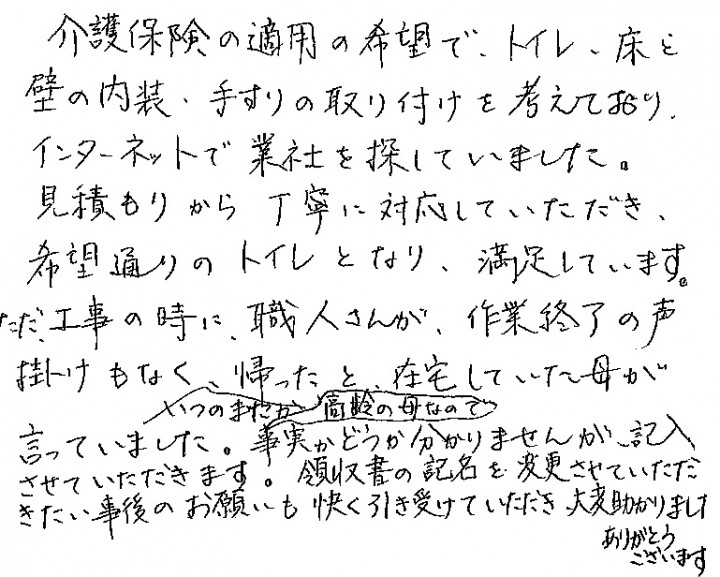 介護保険の適用の希望で、トイレ、床と
壁の内装・手すりの取り付けを考えており、
インターネットで業社を探していました。
見積もりから丁寧に対応していただき、
希望通りのトイレとなり、満足しています。
ただ、工事の時に、職人さんが、作業終了の声
掛けもなく、帰ったと、在宅していた母が
いつのまにか 高齢の母なので
言っていました。事実かどうか分かりませんが、記入
させていただきます。領収書の記名を変更させていただ
きたい事後のお願いも快く引き受けていただき、大変助かりました
ありがとう
ございます